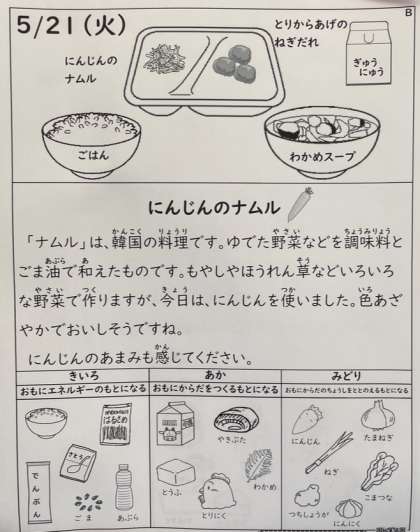 B
5/21(火)
にんじんの
ナムル
とりからあげの
ねぎだれ
ぎゅう
にゅう
ごはん
わかめスープ
にんじんのナムル
「ナムル」は、韓国の料理です。ゆでた野菜などを調味料と
ごま油で和えたものです。もやしやほうれん草などいろいろ
な野菜で作りますが、今日は、にんじんを使いました。色あざ
やかでおいしそうですね。
にんじんのあまみも感じてください。
きいろ
おもにエネルギーのもとになる
はるさめ
さとう
でんぷん
ごま
あぶら
あか
おもにからだをつくるもとになる
やきぶた
とうふ
とりにく
わかめ
みどり
おもにからだのちょうしをととのえるもとになる
にんじん
たまねぎ
ねぎ
こまつな
つちしょうが
にんにく